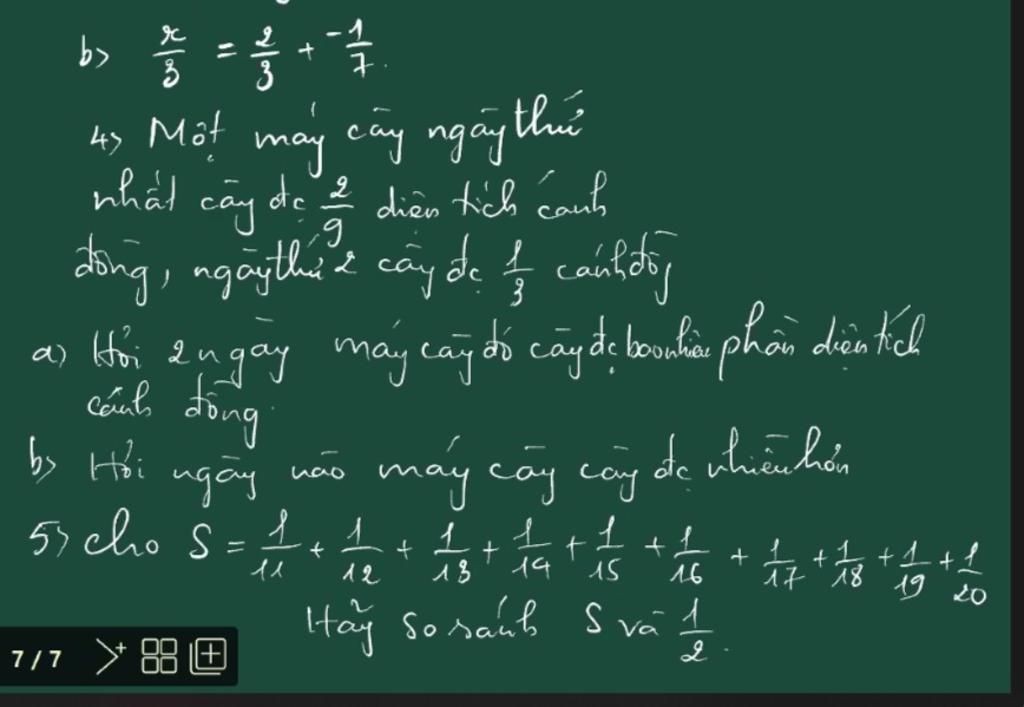 b> x/3 = 2/3 + -1/7.
4> Một máy cày ngày thứ
nhất cày đc 2/9 diện tích cánh
đồng, ngày thứ 2 cày đc 1/3 cánh đồg
a) Hỏi 2 ngày máy cày đó cày đc bao nhiêu phần diện tích
cánh đồng.
b> Hỏi ngày nào máy cày cày đc nhiều hơn
5> cho S = 1/11 + 1/12 + 1/13 + 1/14 + 1/15 + 1/16 + 1/17 + 1/18 + 1/19 + 1/20
Hãy so sánh S và 1/2.
7 / 7